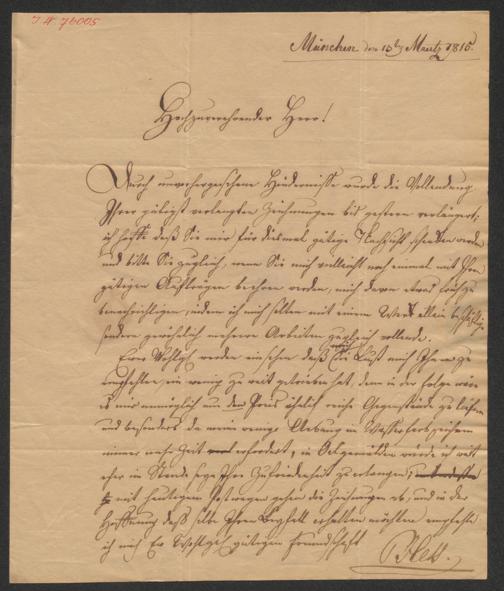 I N 76005
München den 15t März 1815.
Hochzuverehrender Herr!
Durch unvorhergesehene Hindernisse wurde die Vollendung
Ihrer gütigst verlangten Zeichnungen bis gestern verlängert;
ich hoffe daß Sie mir für diesmal gütige Nachsicht schenken werden
und bitte Sie zugleich, wenn Sie mich vielleicht noch einmal mit Ihren
gütigen Aufträgen beehren werden, mich davon etwas früher zu
benachrichtigen, indem ich mich selten mit einem Werk allein beschäftige
sondern gewöhnlich mehrere Arbeiten zugleich vollende.
Euer Wohlgb werden einsehen daß mich die Lust mich Ihnen zu
empfehlen, ein wenig zu weit getrieben hat, denn in der Folge wäre
es mir unmöglich um den Preis ähnlich reiche Gegenstände zu liefern
und besonders da meine wenige Uebung in Wasserfarbzeichnen
immer mehr Zeit erfordert, in Oelgemälden würde ich weit
eher im Stande seyn Ihre Zufriedenheit zu erlangen,
mit heutigem Postwagen gehen die Zeichnungen ab, und in der
Hoffnung daß selbe Ihren Beyfall erhalten möchten empfehle
ich mich Er Wohlgb gütigen Freundschaft
P Hess.